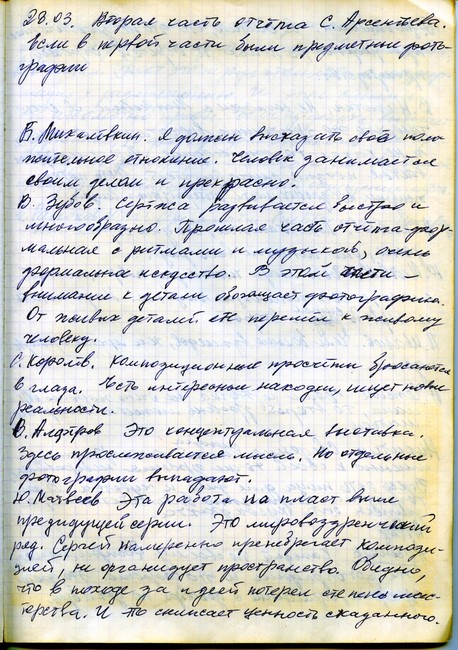 28.03. Вторая часть отчёта С. Арсентьева.
Если в первой части были предметные фото-
графии
Б. Михалёвкин. Я должен высказать своё поло-
жительное отношение. Человек занимается
своим делом и прекрасно.
В. Зубов. Серёжа развивается быстро и
многообразно. Прошлая часть отчёта фор-
мальная с ритмами и музыкой, очень
формальное искусство... В этой части –
внимание к детали обогащает фотографика.
От живых деталей он перешёл к живому
человеку.
С. Королёв. Композиционные просчёты бросаются
в глаза. Есть интересные находки, ищет новые
реальности.
В. Это концептуальная выставка.
Здесь прослеживается мысль. Но отдельные
фотографии выпадают.
Ю. Матвеев Эта работа на пласт выше
предыдущей серии. Это мировоззренческий
ряд. Сергей намеренно пренебрегает компози-
цией, не организует пространство. Обидно,
что в походе за идеей потерял степень мас-
терства. И то снижает ценность сказанного.